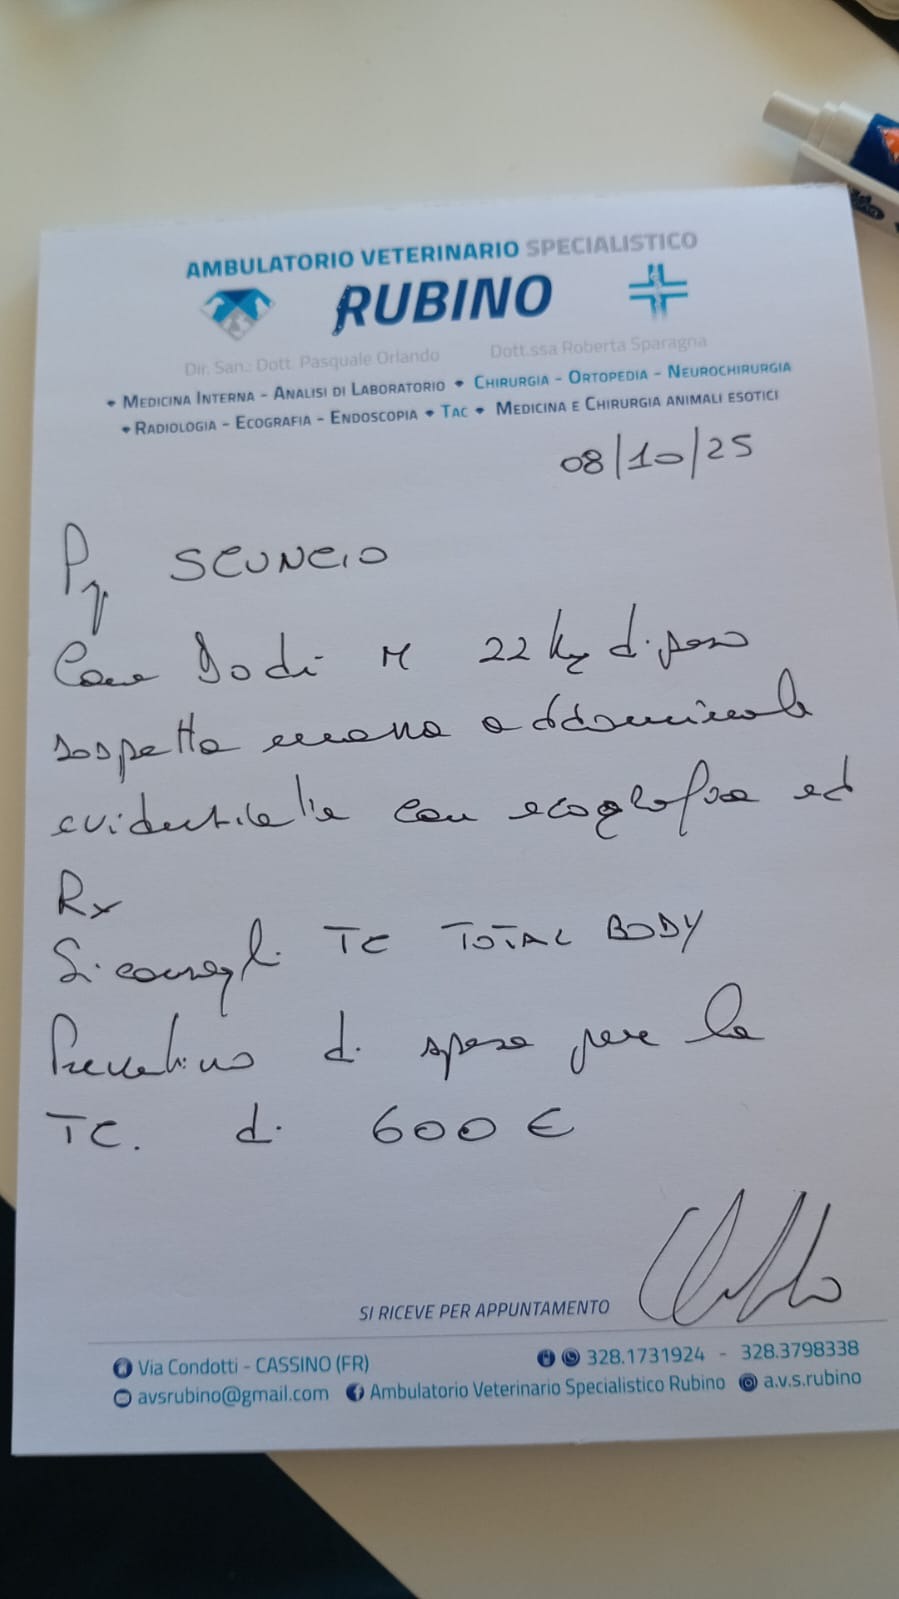 AMBULATORIO VETERINARIO SPECIALISTICO
RUBINO
Dir. San.: Dott. Pasquale Orlando Dott.ssa Roberta Sparagna
• MEDICINA INTERNA - ANALISI DI LABORATORIO • CHIRURGIA - ORTOPEDIA - NEUROCHIRURGIA
• RADIOLOGIA - ECOGRAFIA - ENDOSCOPIA • TAC • MEDICINA E CHIRURGIA ANIMALI ESOTICI
08/10/25
SCUNCIO
Cane Dodi M 22 kg di peso
sospetta massa addominale
evidentiabile con ecografia ed
Rx
Si consigli TC TOTAL BODY
Preventivo di spesa per la
TC. di 600 €
SI RICEVE PER APPUNTAMENTO
Via Condotti - CASSINO (FR) 328.1731924 - 328.3798338
avsrubino@gmail.com Ambulatorio Veterinario Specialistico Rubino a.v.s.rubino